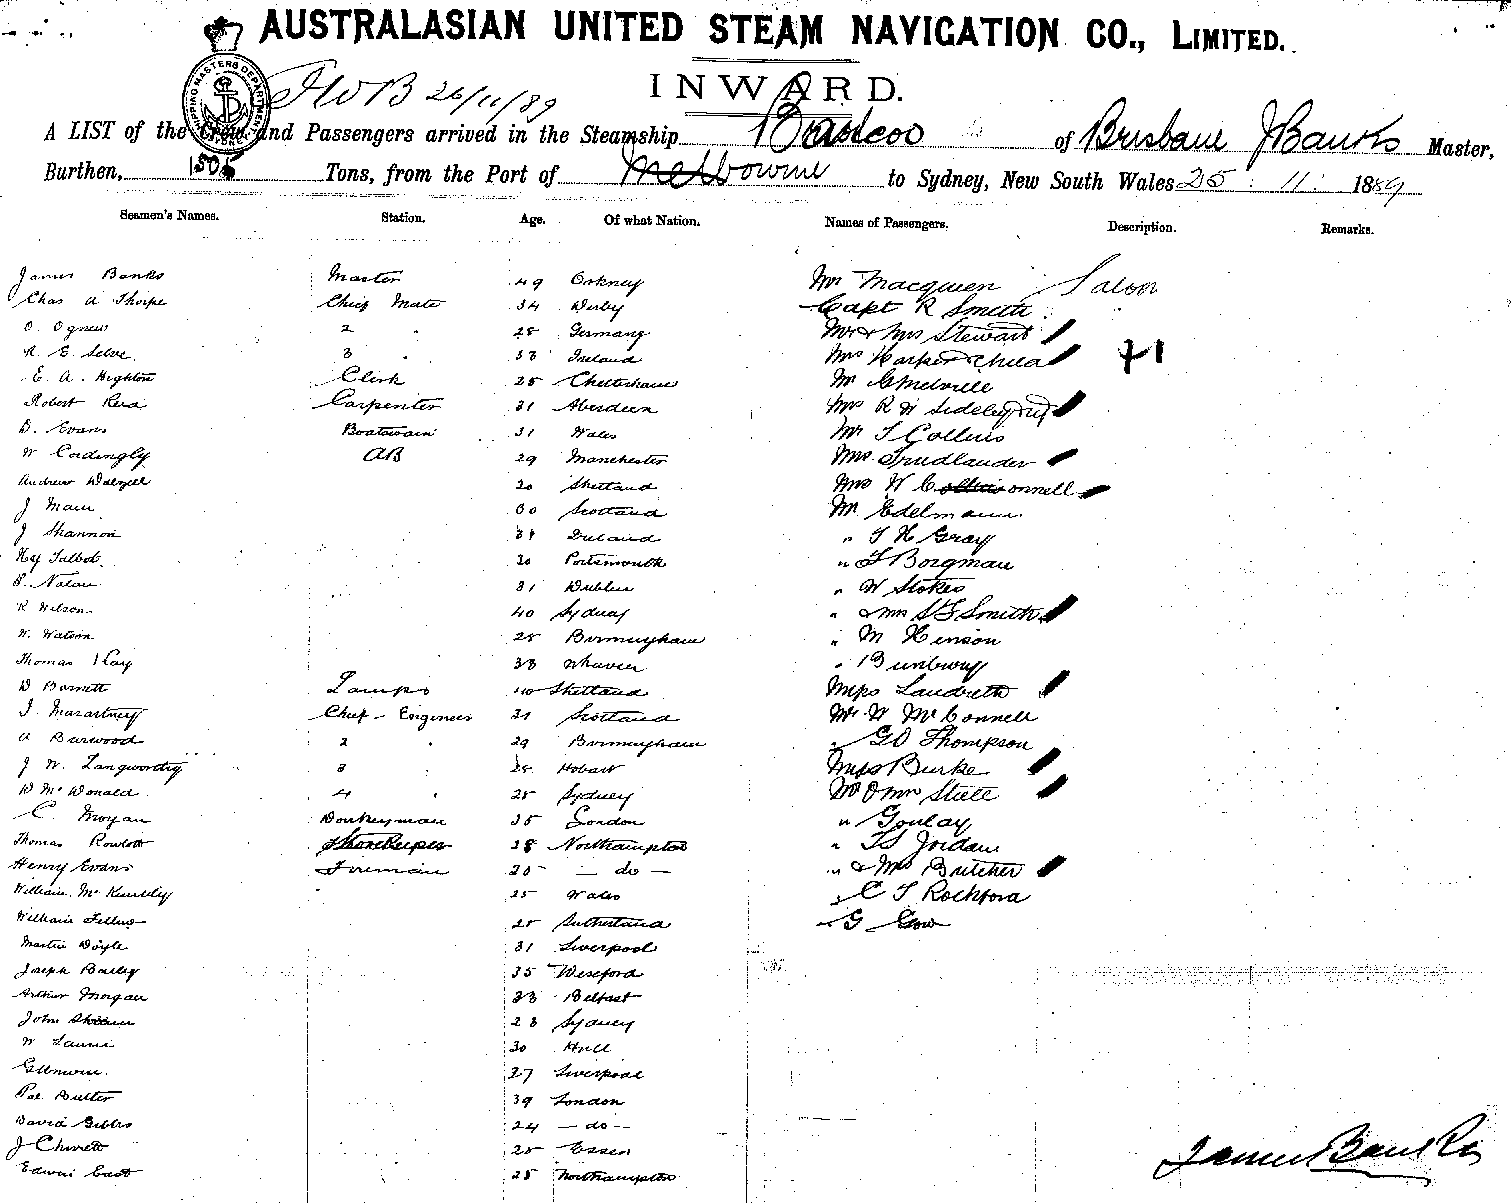 AUSTRALASIAN UNITED STEAM NAVIGATION CO., LIMITED.
INWARD.
26/11/89
A LIST of the Crew and Passengers arrived in the Steamship Barcoo of Brisbane J Banks Master,
Burthen, 1505 Tons, from the Port of Melbourne to Sydney, New South Wales 25 : 11 : 1889
Seamen's Names. Station. Age. Of what Nation. Names of Passengers. Description. Remarks.
James Banks Master 49 Orkney Mr Macqueen Saloon
Chas A Thorpe Chief Mate 34 Derby Capt R Smith
O. Ogneus 2 " 28 Germany Mr & Mrs Stewart
R. E. Selve 3 " 33 Ireland Mrs Harper & Child +1
E. A. Highton Clerk 25 Cheltenham Mr Melville
Robert Reid Carpenter 31 Aberdeen Mrs R W Sedeley
D. Evans Boatswain 31 Wales Mr T Collins
W Cordingly AB 29 Manchester Mrs Friedlander
Andrew Dalzell 20 Shetland Mrs W Connell
J Main 30 Scotland Mr Edelmann
J Shannon Ireland " T H Gray
Hy Talbot 30 Portsmouth " Borgman
Nolan 31 Dublin " W Stokes
R Wilson 40 Sydney " & Mrs Smith
W. Watson 25 Birmingham " M Henson
Thomas Kay 33 " Bunbury
D Barnett Lamps 40 Shetland Miss Landreth
Chief Engineer 31 Scotland Mr W McConnell
A Burwood 2 " 29 Birmingham " GD Thompson
J W. Langworthy 3 Hobart Miss Burke
D McDonald 4 " 25 Sydney Mr & Mrs Steele
C. Morgan Donkeyman 35 London " Goulay
Thomas Rowlett Storekeeper 28 Northampton " Jordan
Henry Evans Fireman 25 — do — " & Mrs Butcher
William 25 Wales " C T Rochford
William 25 Sutherland G Gow
Martin Doyle 31 Liverpool
Joseph Bailey 35 Wexford
Arthur Morgan 33 Belfast
John 23 Sydney
W 30 Hull
27 Liverpool
Butler 39 London
David Gibbs 24 — do —
J 25 Essex
Edwin East 25 Northampton
James Banks